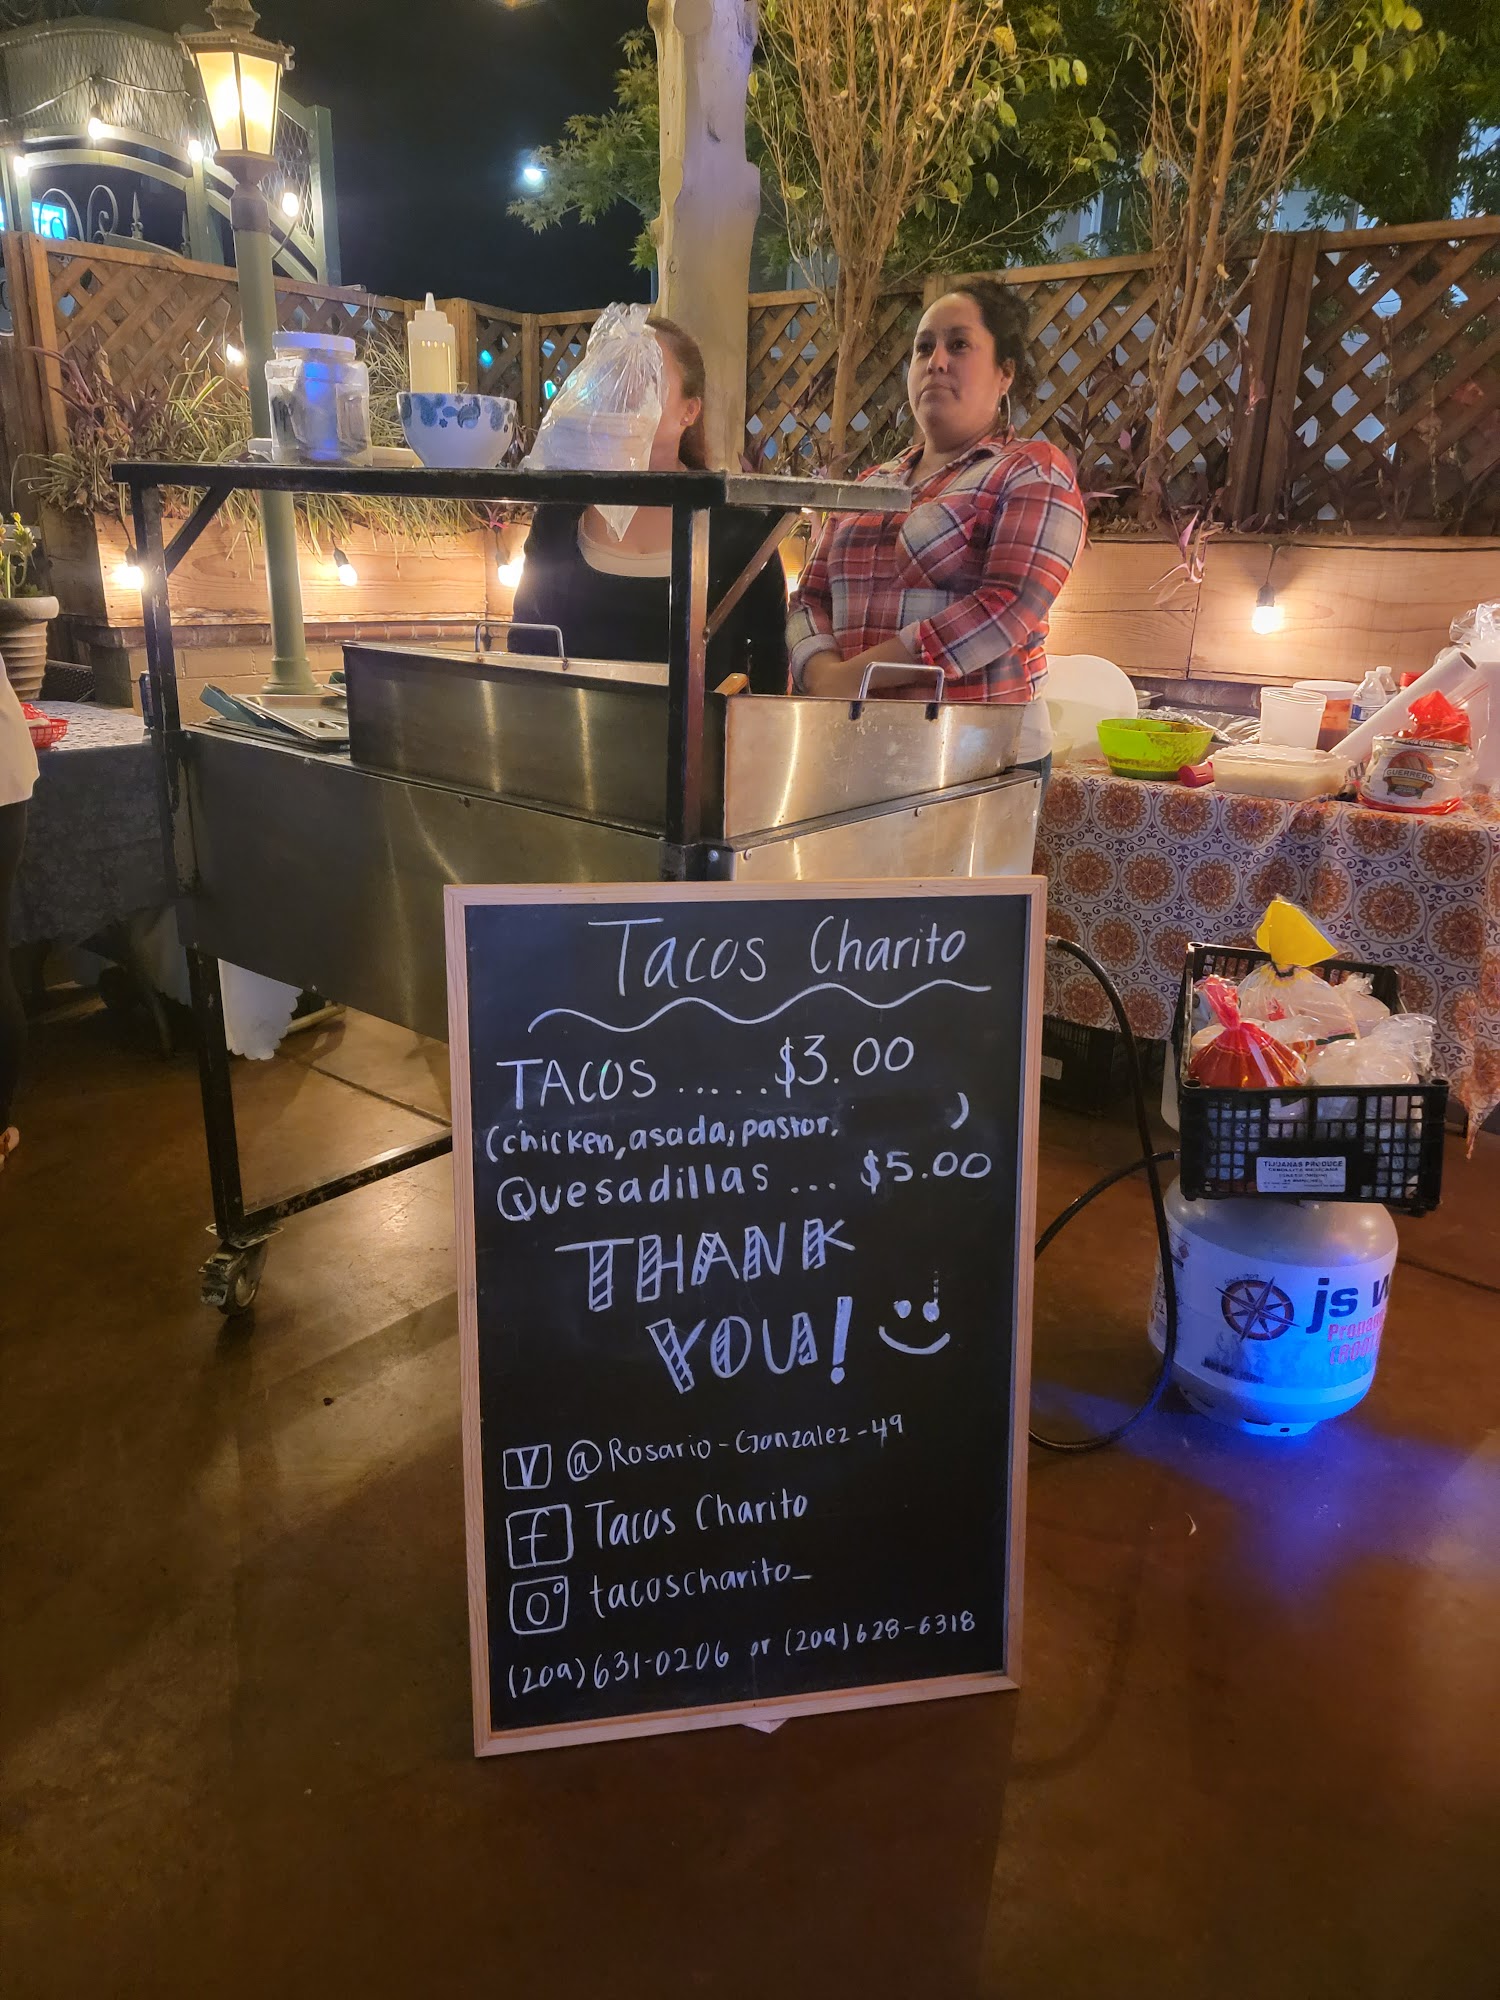 Tacos Charito
TACOS.....$3.00
(chicken, asada, pastor, )
Quesadillas ... $5.00
THANK
YOU!
V @Rosario-Gonzalez-49
f Tacos Charito
tacoscharito_
(209)631-0206 or (209)628-6318
GUERRERO
TIJUANAS PRODUCE
js w